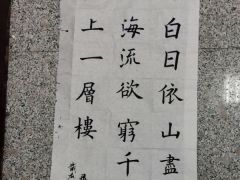 白日依山盡
海流欲窮千
上一層樓